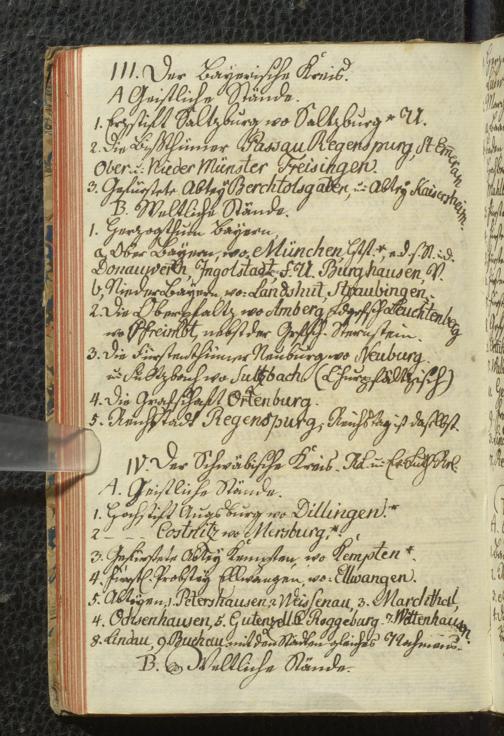 III. Der Bayerische Kreis.
A Geistliche Stände.
1. Erzstift Saltzburg wo Saltzburg * U.
2. Die Bißthümer Passau, Regenspurg, St Emeran,
Ober- u. Nieder Münster Freisingen.
3. Gefürstete Abtey Berchtolsgaden, u. Abtey Kaisersheim.
B. Weltliche Stände.
1. Herzogthum Bayern,
a, Ober Bayern, wo, München,
Donauwerth, Ingolstadt, f. U. Burghausen, V.
b, Nieder Bayern wo: Landshut, Straubingen.
2. Die Oberpfaltz wo Amberg, Leuchtenberg
wo Pfreimbt, nebst der Sternstein.
3. Die Fürstenthümer Neuburg wo Neuburg
u. Sultzbach wo Sultzbach (Churpfältzisch)
4. Die Grafschafft Ortenburg.
5. Reichsstadt Regenspurg, Reichstag ist daselbst.
IV. Der Schwäbische Kreis.
A. Geistliche Stände.
1. Hochstift Augsburg wo Dillingen. *
2 - - - Costnitz wo Mersburg, *
3. Gefürstete Abtey Kempten, wo Kempten *.
4. Fürstl. Probstey Ellwangen, wo: Ellwangen.
5. Abteyen, 1. Petershausen, 2 Weissenau, 3. Marchthal,
4. Ochsenhausen, 5. Gutenzell 6. Roggeburg. 7. Wettenhausen.
8. Lindau, 9. Buchau, mit den Städten gleiches Nahmens.
B. Weltliche Stände.